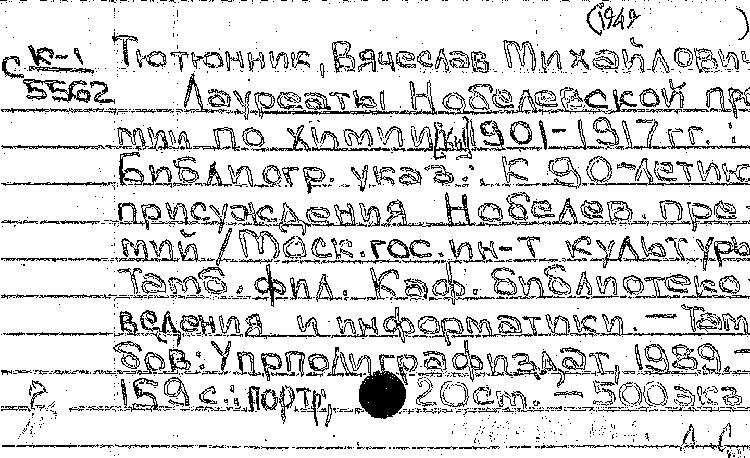 (1949 )
К-1 Тютюнник, Вячеслав Михайлович
С 5562 Лауреаты Нобелевской пре-
мии по химии 1901-1917 гг. :
Библиогр. указ.: К 90-летию
присуждения Нобелев. пре-
мий / Моск. гос. ин-т культуры
Тамб. фил. Каф. библиотеко-
ведения и информатики. — Там-
бов: Упрполиграфиздат, 1989. —
159 с.: портр, 20 ст. — 500 экз